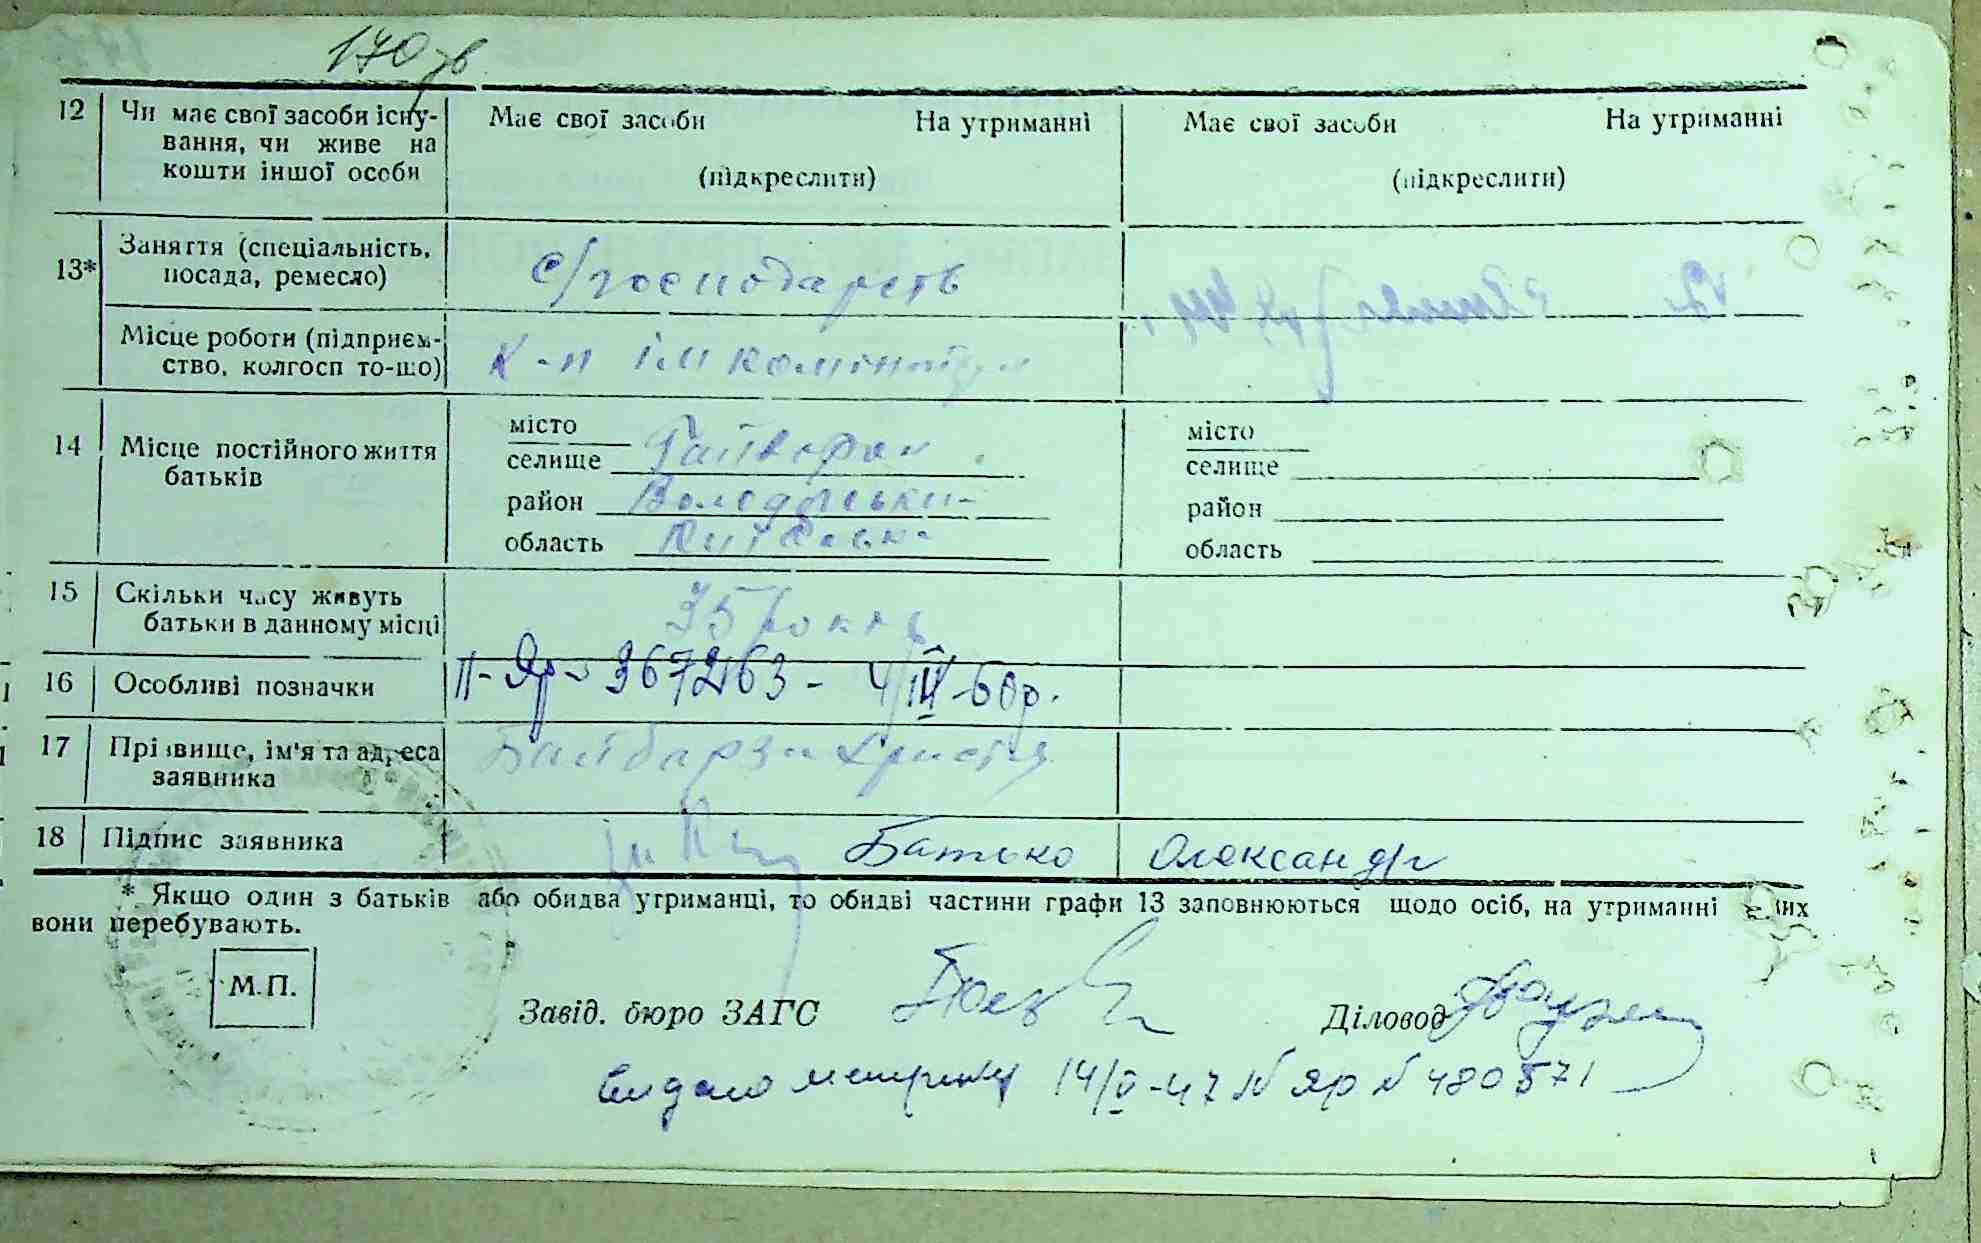 170зв
12 Чи має свої засоби існу- Має свої засоби На утриманні Має свої засоби На утриманні
вання, чи живе на
кошти іншої особи (підкреслити) (підкреслити)
13* Заняття (спеціальність, с/господарств
посада, ремесло)
Місце роботи (підприєм- к-п ім комінтерн
ство, колгосп то-що)
14 Місце постійного життя місто Гайворон місто
батьків селище селище
район Володарський район
область Київська область
15 Скільки часу живуть 35 років
батьки в данному місці
16 Особливі позначки II-Яр-367263- 4/III-60р.
17 Прізвище, ім'я та адреса Байбарза Христя
заявника
18 Підпис заявника Батько Олександр
* Якщо один з батьків або обидва утриманці, то обидві частини графи 13 заповнюються щодо осіб, на утриманні яких
вони перебувають.
М.П.
Завід. бюро ЗАГС Діловод
видано метрику 14/V-47 № Яр № 480571